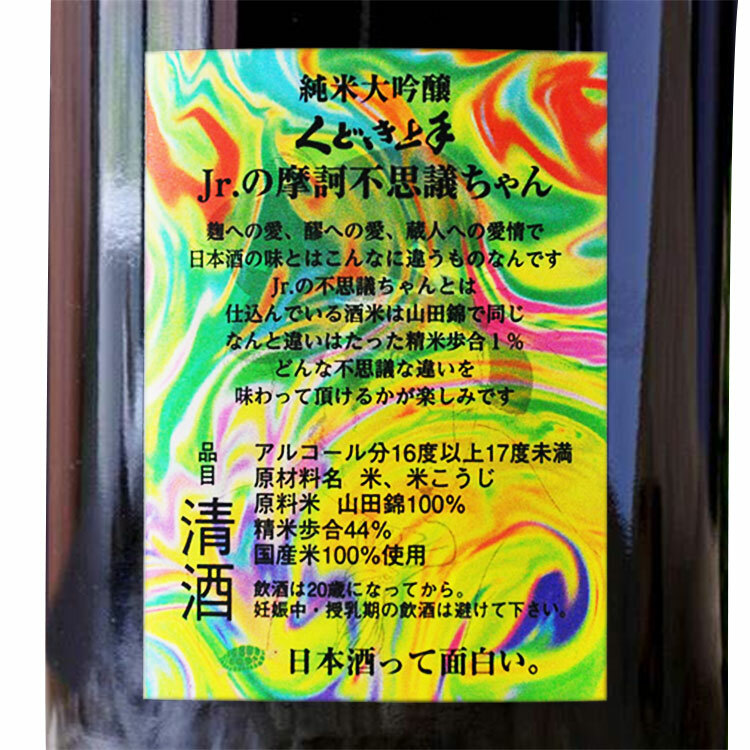 純米大吟醸
くどき上手
Jr.の摩訶不思議ちゃん
麹への愛、醪への愛、蔵人への愛情で
日本酒の味とはこんなに違うものなんです
Jr.の不思議ちゃんとは
仕込んでいる酒米は山田錦で同じ
なんと違いはたった精米歩合１％
どんな不思議な違いを
味わって頂けるかが楽しみです
品目
清酒
アルコール分16度以上17度未満
原材料名 米、米こうじ
原料米 山田錦100%
精米歩合44%
国産米100%使用
飲酒は20歳になってから。
妊娠中・授乳期の飲酒は避けて下さい。
日本酒って面白い。